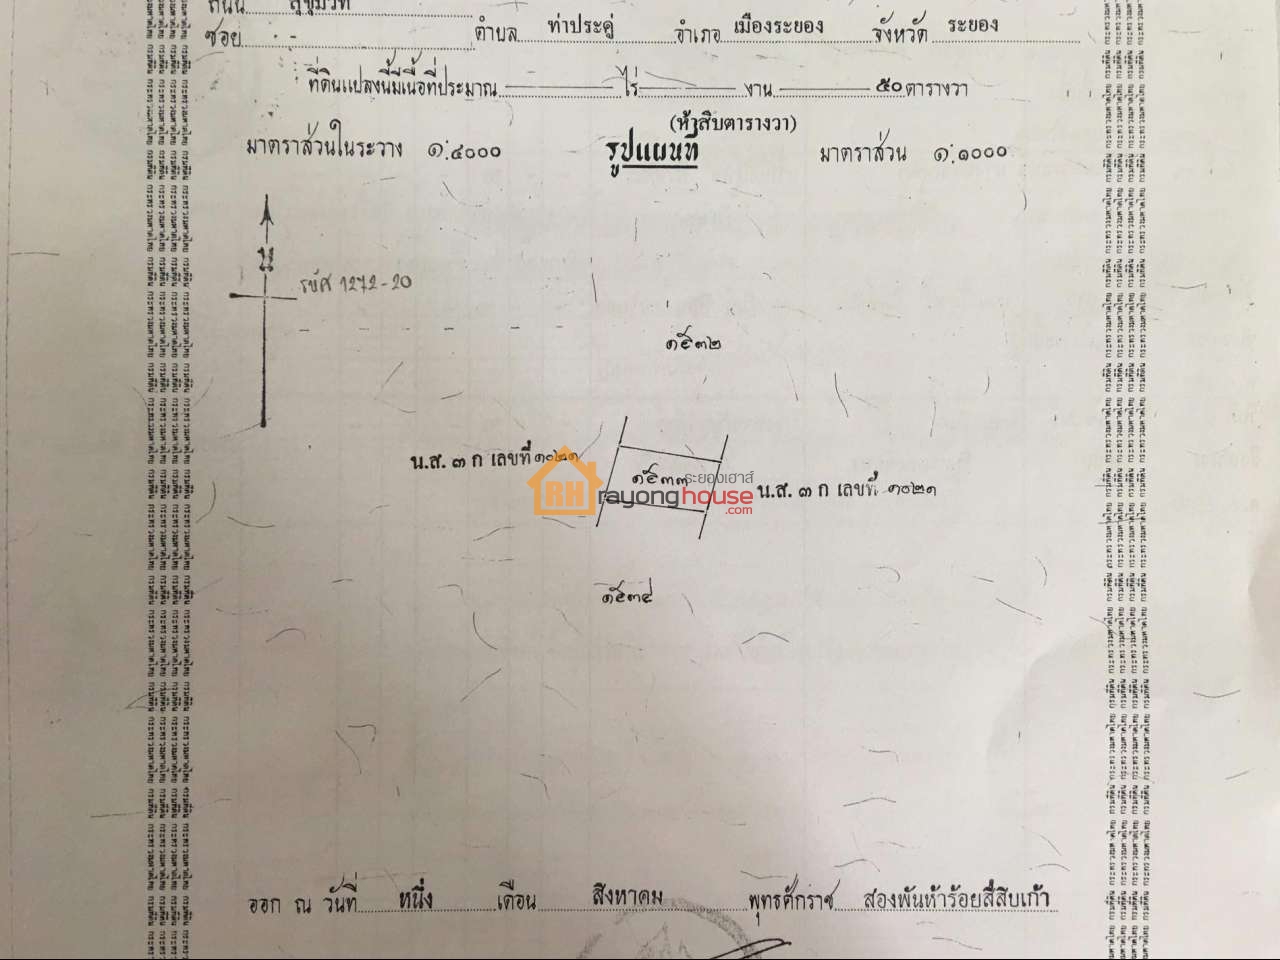 ถนน สุขุมวิท
ซอย - ตำบล ท่าประดู่ อำเภอ เมืองระยอง จังหวัด ระยอง
ที่ดินแปลงนี้มีเนื้อที่ประมาณ ไร่ งาน ๕๐ ตารางวา
(ห้าสิบตารางวา)
มาตราส่วนในระวาง ๑:๔๐๐๐ รูปแผนที่ มาตราส่วน ๑:๑๐๐๐
น
รหัส 1272-20
๑๕๓๒
น.ส. ๓ ก เลขที่ ๑๐๒๑
๑๕๓๓
ระยองเฮาส์
RH rayonghouse
.com
น.ส. ๓ ก เลขที่ ๑๐๒๑
๑๕๓๔
ออก ณ วันที่ หนึ่ง เดือน สิงหาคม พุทธศักราช สองพันห้าร้อยสี่สิบเก้า
กรมที่ดิน กระทรวงมหาดไทย